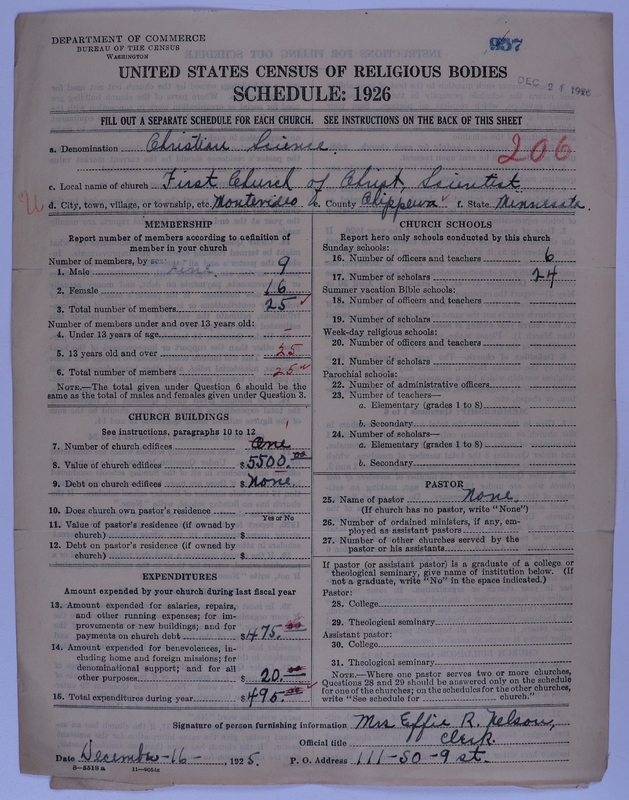 DEPARTMENT OF COMMERCE
BUREAU OF THE CENSUS
WASHINGTON
957
UNITED STATES CENSUS OF RELIGIOUS BODIES
DEC 21 1926
SCHEDULE: 1926
FILL OUT A SEPARATE SCHEDULE FOR EACH CHURCH. SEE INSTRUCTIONS ON THE BACK OF THIS SHEET
a. Denomination Christian Science.
206
c. Local name of church First Church of Christ, Scientist
d. City, town, village, or township, etc. Montevideo e. County Chippewa f. State Minnesota.
MEMBERSHIP
Report number of members according to definition of
member in your church
Number of members, by sex:
1. Male 9
2. Female 16
3. Total number of members 25
Number of members under and over 13 years old:
4. Under 13 years of age –
5. 13 years old and over 25
6. Total number of members 25
NOTE.—The total given under Question 6 should be the
same as the total of males and females given under Question 3.
CHURCH BUILDINGS
See instructions, paragraphs 10 to 12
7. Number of church edifices One 1
8. Value of church edifices $5500.00
9. Debt on church edifices $None.
10. Does church own pastor's residence
Yes or No
11. Value of pastor's residence (if owned by
church) $
12. Debt on pastor's residence (if owned by
church) $
EXPENDITURES
Amount expended by your church during last fiscal year
13. Amount expended for salaries, repairs,
and other running expenses; for im-
provements or new buildings; and for
payments on church debt $475.00
14. Amount expended for benevolences, in-
cluding home and foreign missions; for
denominational support; and for all
other purposes $20.00
15. Total expenditures during year $495.00
CHURCH SCHOOLS
Report here only schools conducted by this church
Sunday schools:
16. Number of officers and teachers 6
17. Number of scholars 24
Summer vacation Bible schools:
18. Number of officers and teachers
19. Number of scholars
Week-day religious schools:
20. Number of officers and teachers
21. Number of scholars
Parochial schools:
22. Number of administrative officers
23. Number of teachers—
a. Elementary (grades 1 to 8)
b. Secondary
24. Number of scholars—
a. Elementary (grades 1 to 8)
b. Secondary
PASTOR
25. Name of pastor None.
(If church has no pastor, write "None")
26. Number of ordained ministers, if any, em-
ployed as assistant pastors
27. Number of other churches served by the
pastor or his assistants
If pastor (or assistant pastor) is a graduate of a college or
theological seminary, give name of institution below. (If
not a graduate, write "No" in the space indicated.)
Pastor:
28. College
29. Theological seminary
Assistant pastor:
30. College
31. Theological seminary
NOTE.—Where one pastor serves two or more churches,
Questions 28 and 29 should be answered only on the schedule
for one of the churches; on the schedules for the other churches,
write "See schedule for church."
Signature of person furnishing information Mrs Effie R. Nelson,
Official title Clerk.
Date December-16-, 1925. P. O. Address 111-SO-9 st.
8—5518 a 11—9051c